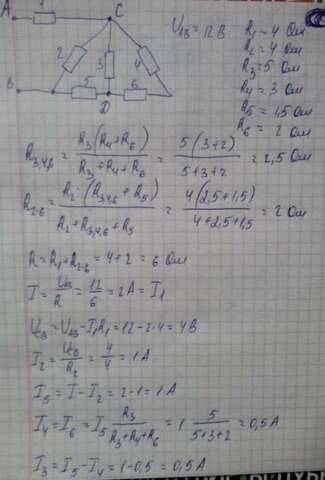 A 1 C U_AB = 12 В R1 = 4 Ом
R2 = 4 Ом
2 3 4 R3 = 5 Ом
R4 = 3 Ом
B 5 D 6 R5 = 1,5 Ом
R6 = 2 Ом
R3,4,6 = R3(R4+R6) / R3+R4+R6 = 5(3+2) / 5+3+2 = 2,5 Ом
R2-6 = R2·(R3,4,6+R5) / R2+R3,4,6+R5 = 4(2,5+1,5) / 4+2,5+1,5 = 2 Ом
R = R1+R2-6 = 4+2 = 6 Ом
I = U_AB / R = 12/6 = 2A = I1
U_CB = U_AB - I1R1 = 12-2·4 = 4В
I2 = U_CB / R2 = 4/4 = 1A
I5 = I - I2 = 2-1 = 1A
I4 = I6 = I5 R3 / R3+R4+R6 = 1 5 / 5+3+2 = 0,5A
I3 = I5 - I4 = 1-0,5 = 0,5A